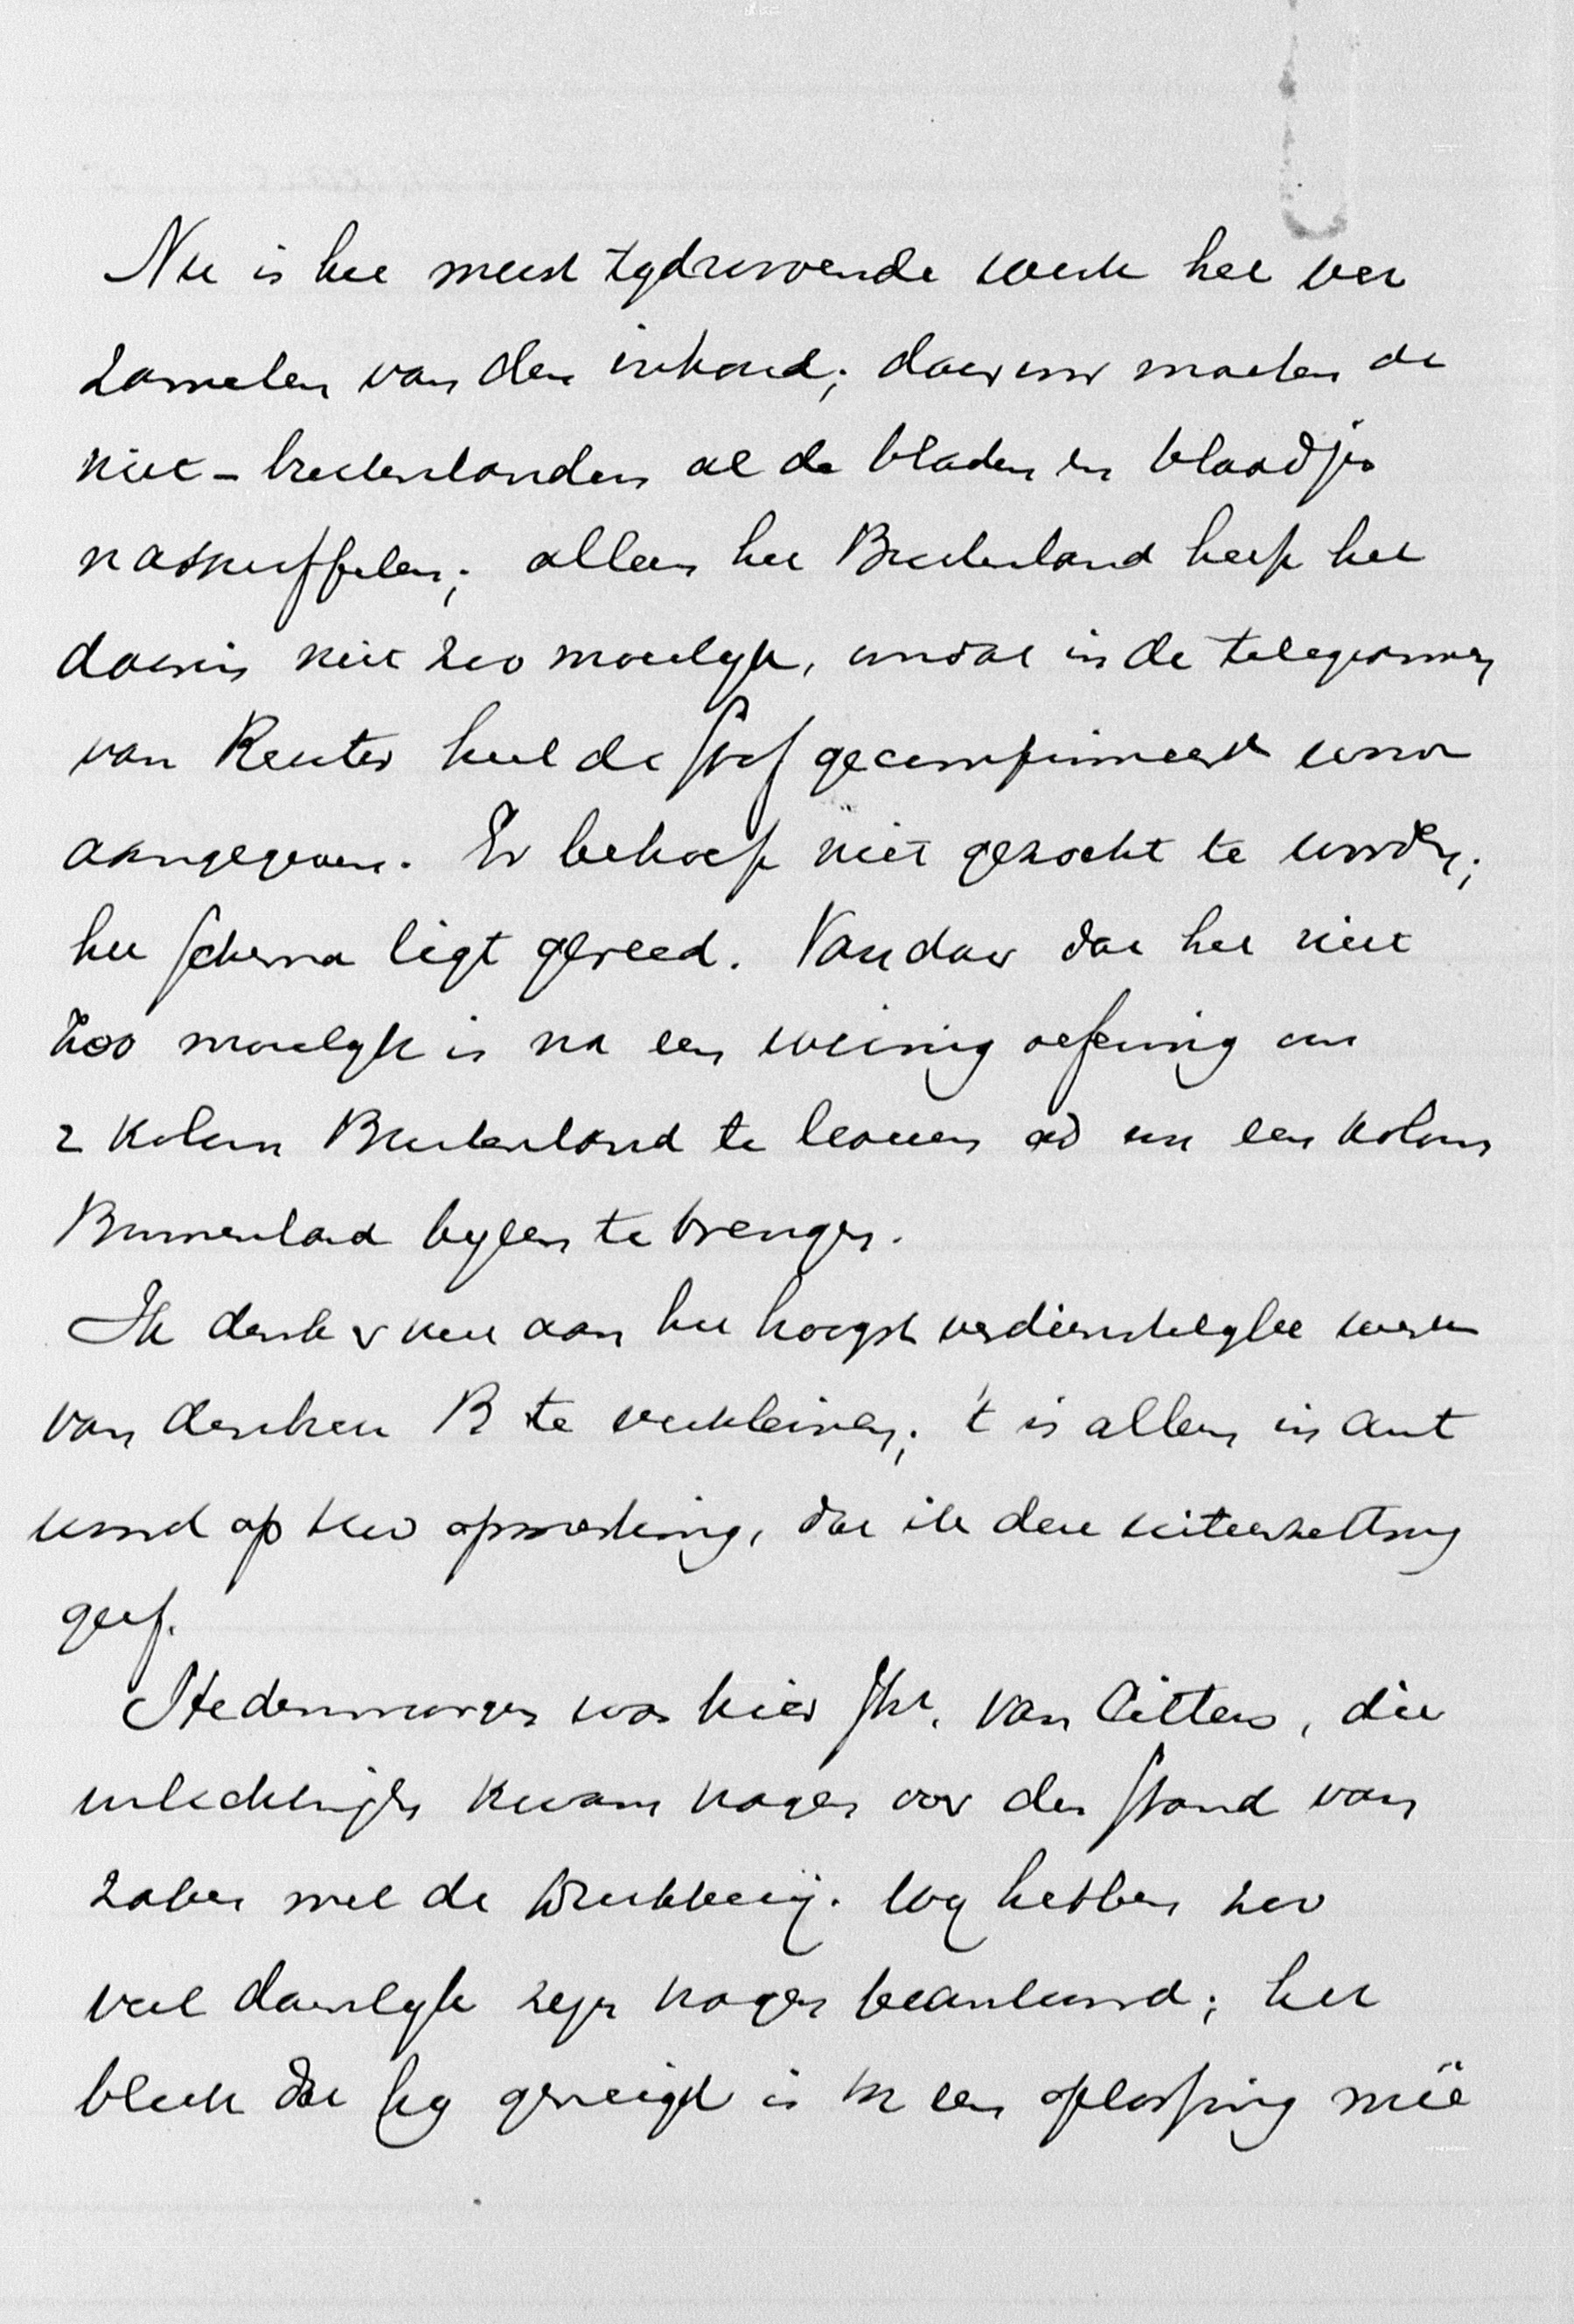 Nu is het meest tydroovende werk het ver
zamelen van den inhoud; daarvoor moeten de
niet-buitenlanders al de bladen en blaadjes
nasnuffelen; alleen het Buitenland heeft het
daarin niet zoo moeilyk, omdat in de telegrammen
van Reuter heel de stof gecomprimeerd word
aangegeven. Er behoeft niet gezocht te worden;
het schema ligt gereed. Vandaar dat het niet
zoo moeilyk is na een weinig oefening om
2 kolom Buitenland te leveren als om een kolom
Binnenland byeen te brengen.
Ik denk er niet aan het hoogst verdienstelyke werk
van den heer B te verkleinen; 't is alleen in ant
woord op uw opmerking, dat ik deze uiteenzetting
geef.
Hedenmorgen was hier Jhr. van Citters, die
inlichtingen kwam vragen over den stand van
zaken met de drukkerij. Wy hebben zoo
veel doenlyk zyn vragen beantwoord; het
bleek dat hy geneigd is tot een oplossing mêe